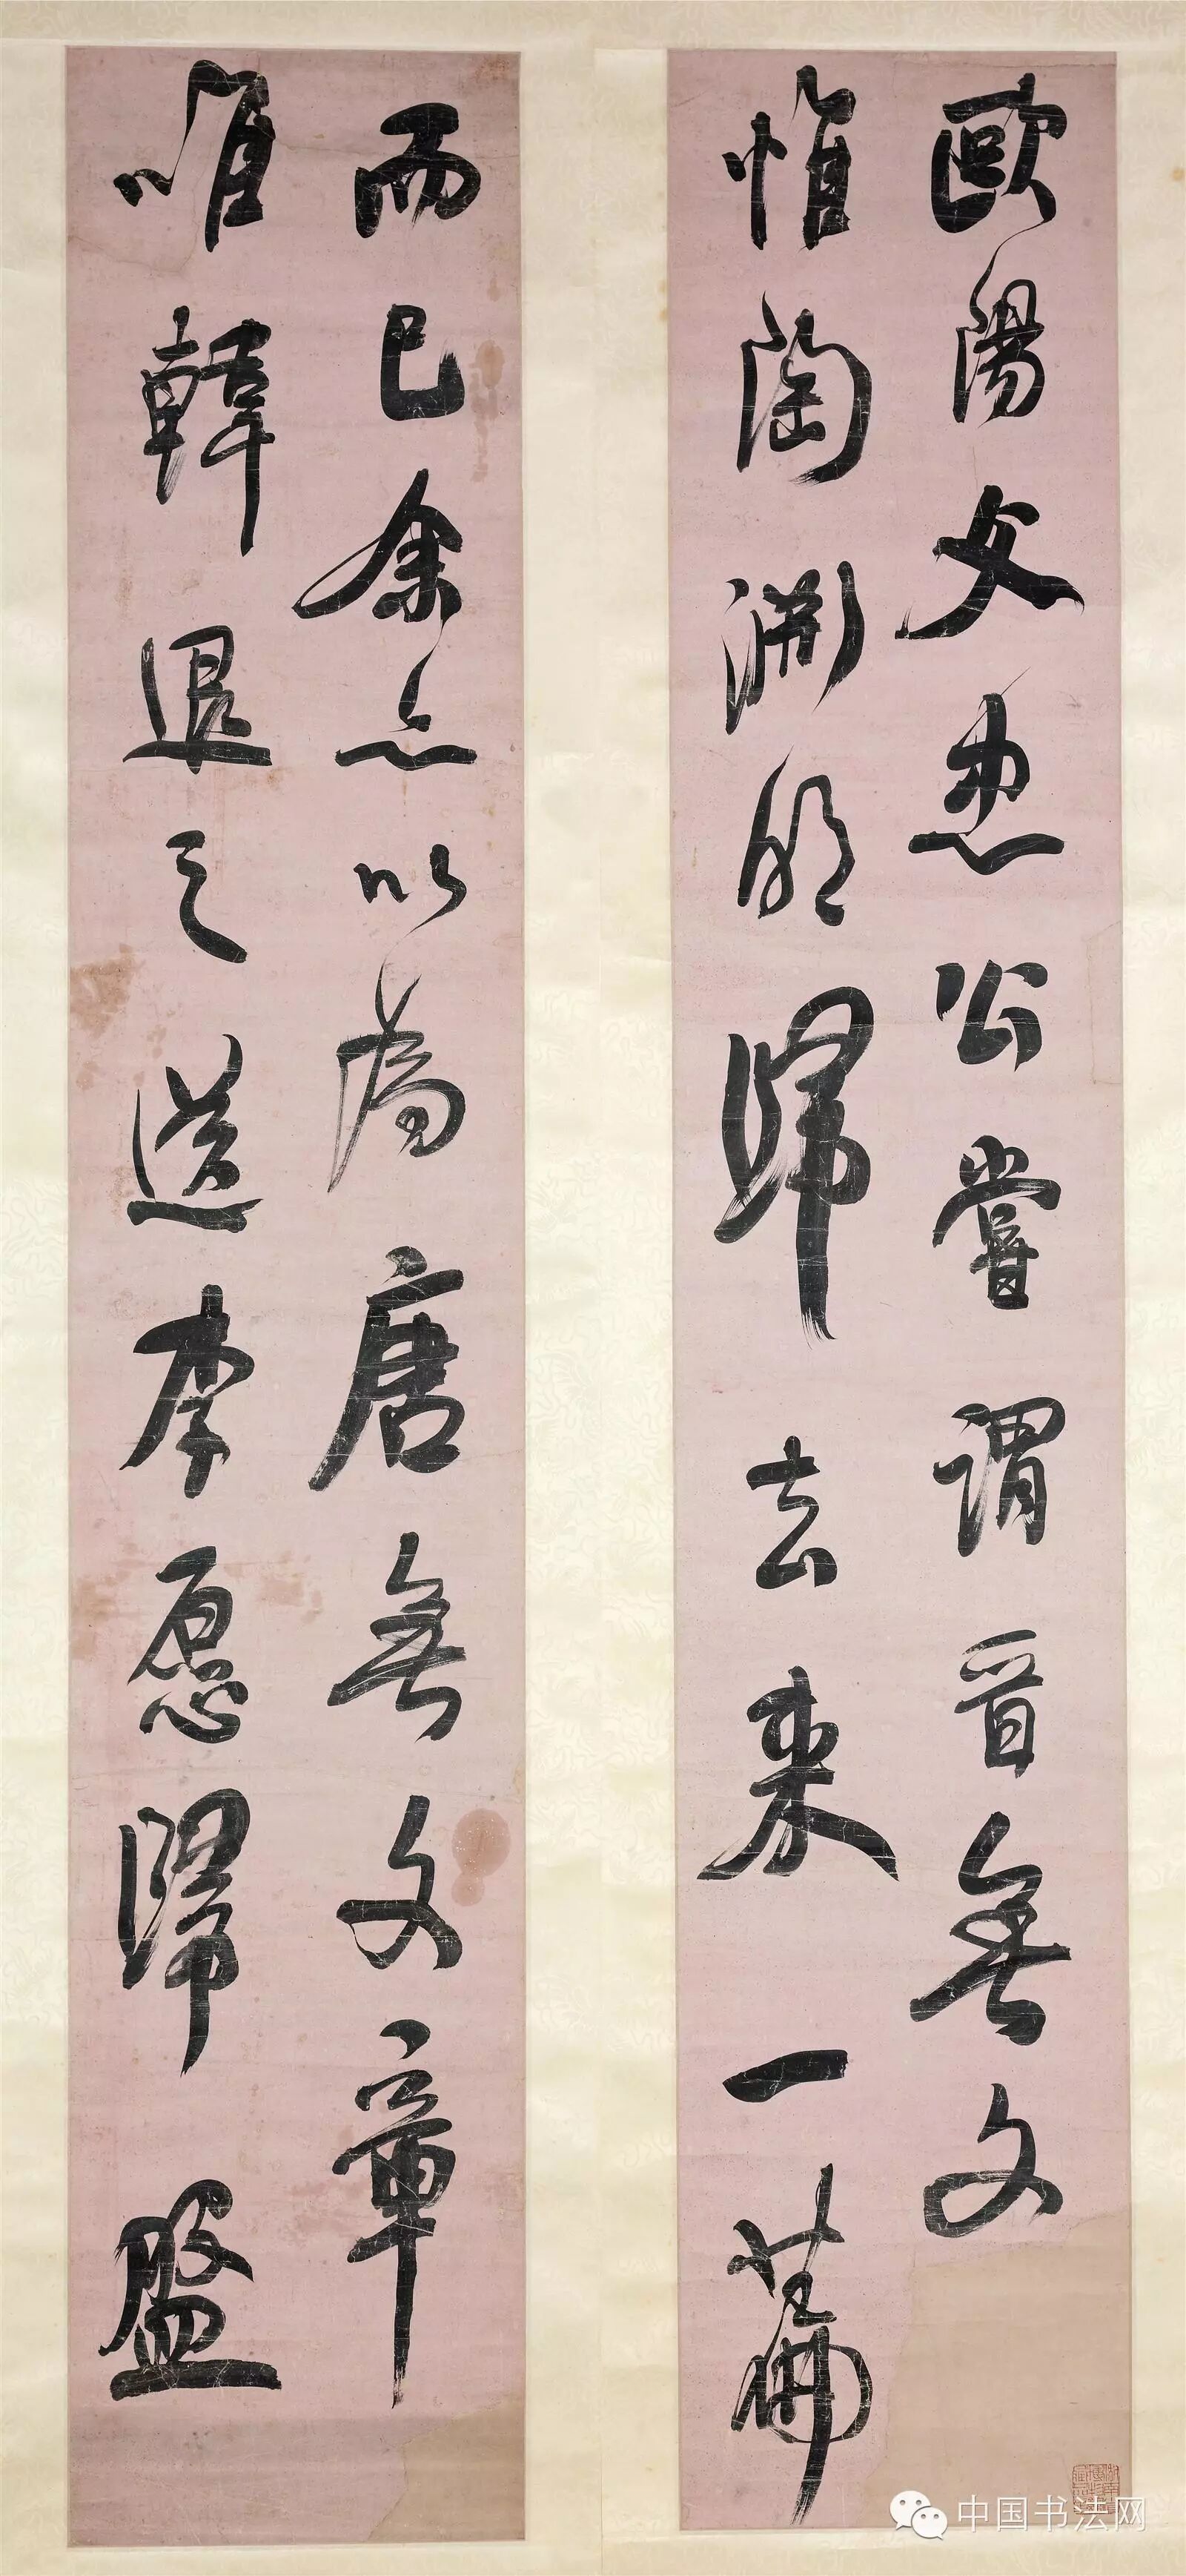 歐陽文忠公嘗謂晉無文
惟陶淵明歸去來一篇
而已余亦以為唐無文章
唯韓退之送李愿歸盤
中国书法网